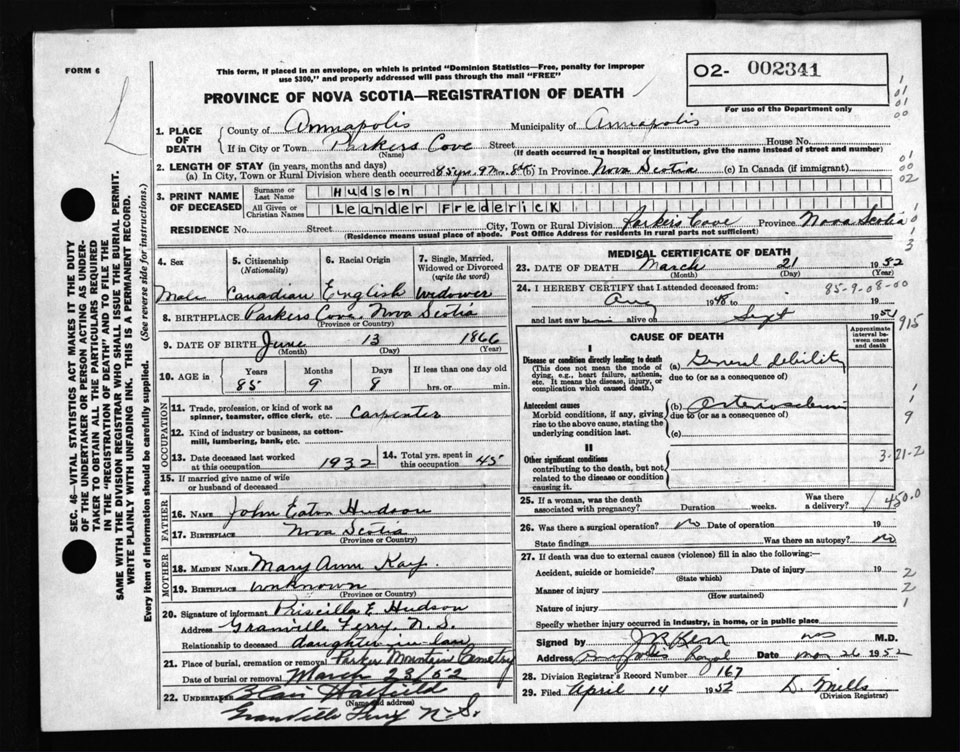 FORM 6
This form, if placed in an envelope, on which is printed "Dominion Statistics—Free, penalty for improper
use $300," and properly addressed will pass through the mail "FREE"
O2- 002341
For use of the Department only
PROVINCE OF NOVA SCOTIA—REGISTRATION OF DEATH
1. PLACE OF DEATH
County of Annapolis Municipality of Annapolis
If in City or Town Parkers Cove Street House No.
(Name) (If death occurred in a hospital or institution, give the name instead of street and number)
2. LENGTH OF STAY (in years, months and days)
(a) In City, Town or Rural Division where death occurred 85yrs. 9 Mos. 8 (b) In Province Nova Scotia (c) In Canada (if immigrant)
3. PRINT NAME OF DECEASED
Surname or Last Name Hudson
All Given or Christian Names Leander Frederick
RESIDENCE No. Street City, Town or Rural Division Parkers Cove Province Nova Scotia
(Residence means usual place of abode. Post Office Address for residents in rural parts not sufficient)
4. Sex
Male
5. Citizenship
(Nationality)
Canadian
6. Racial Origin
English
7. Single, Married,
Widowed or Divorced
(write the word)
widower
8. BIRTHPLACE Parkers Cove, Nova Scotia
(Province or Country)
9. DATE OF BIRTH June 13 1866
(Month) (Day) (Year)
10. AGE in
Years Months Days If less than one day old
85 9 8 hrs. or min.
OCCUPATION
11. Trade, profession, or kind of work as
spinner, teamster, office clerk, etc. Carpenter
12. Kind of industry or business, as cotton-
mill, lumbering, bank, etc.
13. Date deceased last worked
at this occupation 1932
14. Total yrs. spent in
this occupation 45
15. If married give name of wife
or husband of deceased
FATHER
16. NAME John Eaton Hudson
17. BIRTHPLACE Nova Scotia
(Province or Country)
MOTHER
18. MAIDEN NAME Mary Ann Kay
19. BIRTHPLACE unknown
(Province or Country)
20. Signature of informant Priscilla E Hudson
Address Granville Ferry, N.S.
Relationship to deceased daughter-in-law
21. Place of burial, cremation or removal Parker Mountain Cemetery
Date of burial or removal March 23/52
22. UNDERTAKER Blair Hatfield
(Name and address)
Granville Ferry N.S.
MEDICAL CERTIFICATE OF DEATH
23. DATE OF DEATH March 21 1952
(Month) (Day) (Year)
24. I HEREBY CERTIFY that I attended deceased from: 85-9-08-00
Aug 1948 to 19
and last saw him alive on Sept 1951
915
CAUSE OF DEATH
Approximate
interval be-
tween onset
and death
I
Disease or condition directly leading to death
(This does not mean the mode of
dying, e.g., heart failure, asthenia,
etc. It means the disease, injury, or
complication which caused death.)
(a) General debility
due to (or as a consequence of)
Antecedent causes
Morbid conditions, if any, giving
rise to the above cause, stating the
underlying condition last.
(b)
due to (or as a consequence of)
(c)
II
Other significant conditions
contributing to the death, but not
related to the disease or condition
causing it.
3-21-2
25. If a woman, was the death
associated with pregnancy? Duration weeks. Was there
a delivery?
450.0
26. Was there a surgical operation? No Date of operation 19
State findings Was there an autopsy? No
27. If death was due to external causes (violence) fill in also the following:—
Accident, suicide or homicide? Date of injury 19
(State which)
Manner of injury
(How sustained)
Nature of injury
Specify whether injury occurred in industry, in home, or in public place
Signed by J R Kerr M.D.
Address Annapolis Royal Date Mar 26 1952
28. Division Registrar's Record Number 167
29. Filed April 14 1952 D. Mills
(Division Registrar)
SEC. 46—VITAL STATISTICS ACT MAKES IT THE DUTY
OF THE UNDERTAKER OR PERSON ACTING AS UNDER-
TAKER TO OBTAIN ALL THE PARTICULARS REQUIRED
IN THE "REGISTRATION OF DEATH" AND TO FILE THE
SAME WITH THE DIVISION REGISTRAR WHO SHALL ISSUE THE BURIAL PERMIT.
WRITE PLAINLY WITH UNFADING INK. THIS IS A PERMANENT RECORD.
Every item of information should be carefully supplied. (See reverse side for instructions.)